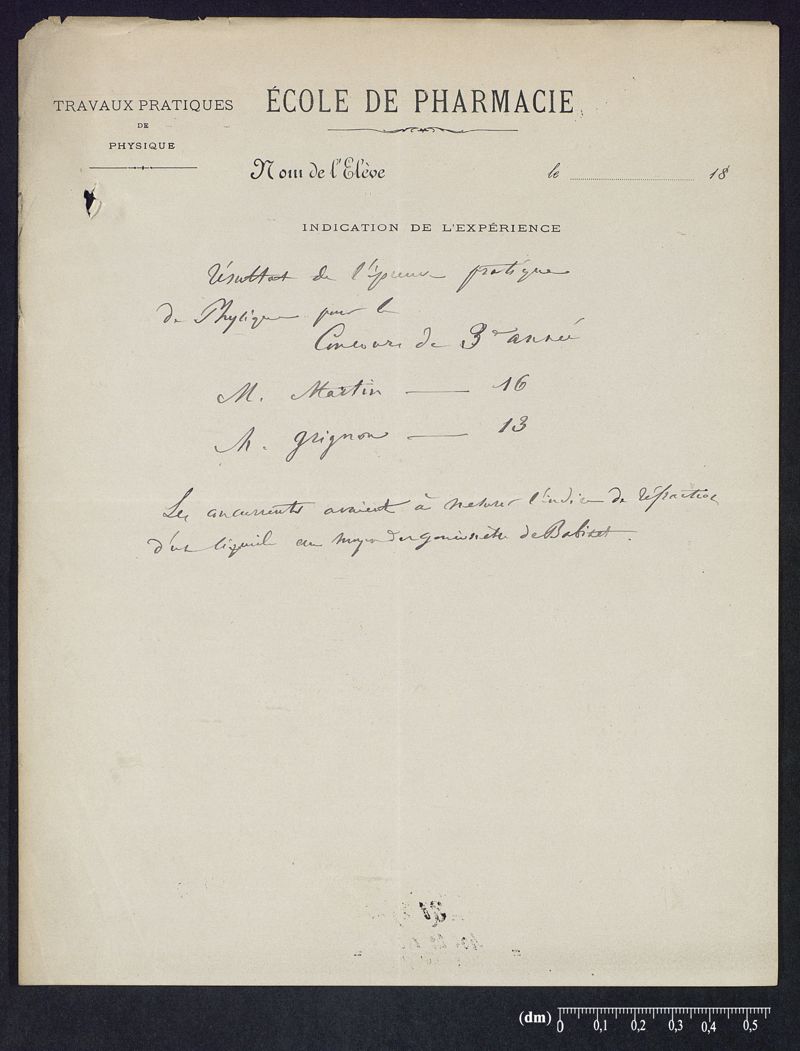 TRAVAUX PRATIQUES
DE
PHYSIQUE
ÉCOLE DE PHARMACIE
Nom de l'Elève
le 18
INDICATION DE L'EXPÉRIENCE
résultat de l'épreuve pratique
de Physique pour le
Concours de 3e année
M. Martin — 16
M. Grignon — 13
Les concurrents avaient à mesurer l'indice de réfraction
d'un liquide au moyen du goniomètre de Babinet.
(dm) 0 0,1 0,2 0,3 0,4 0,5